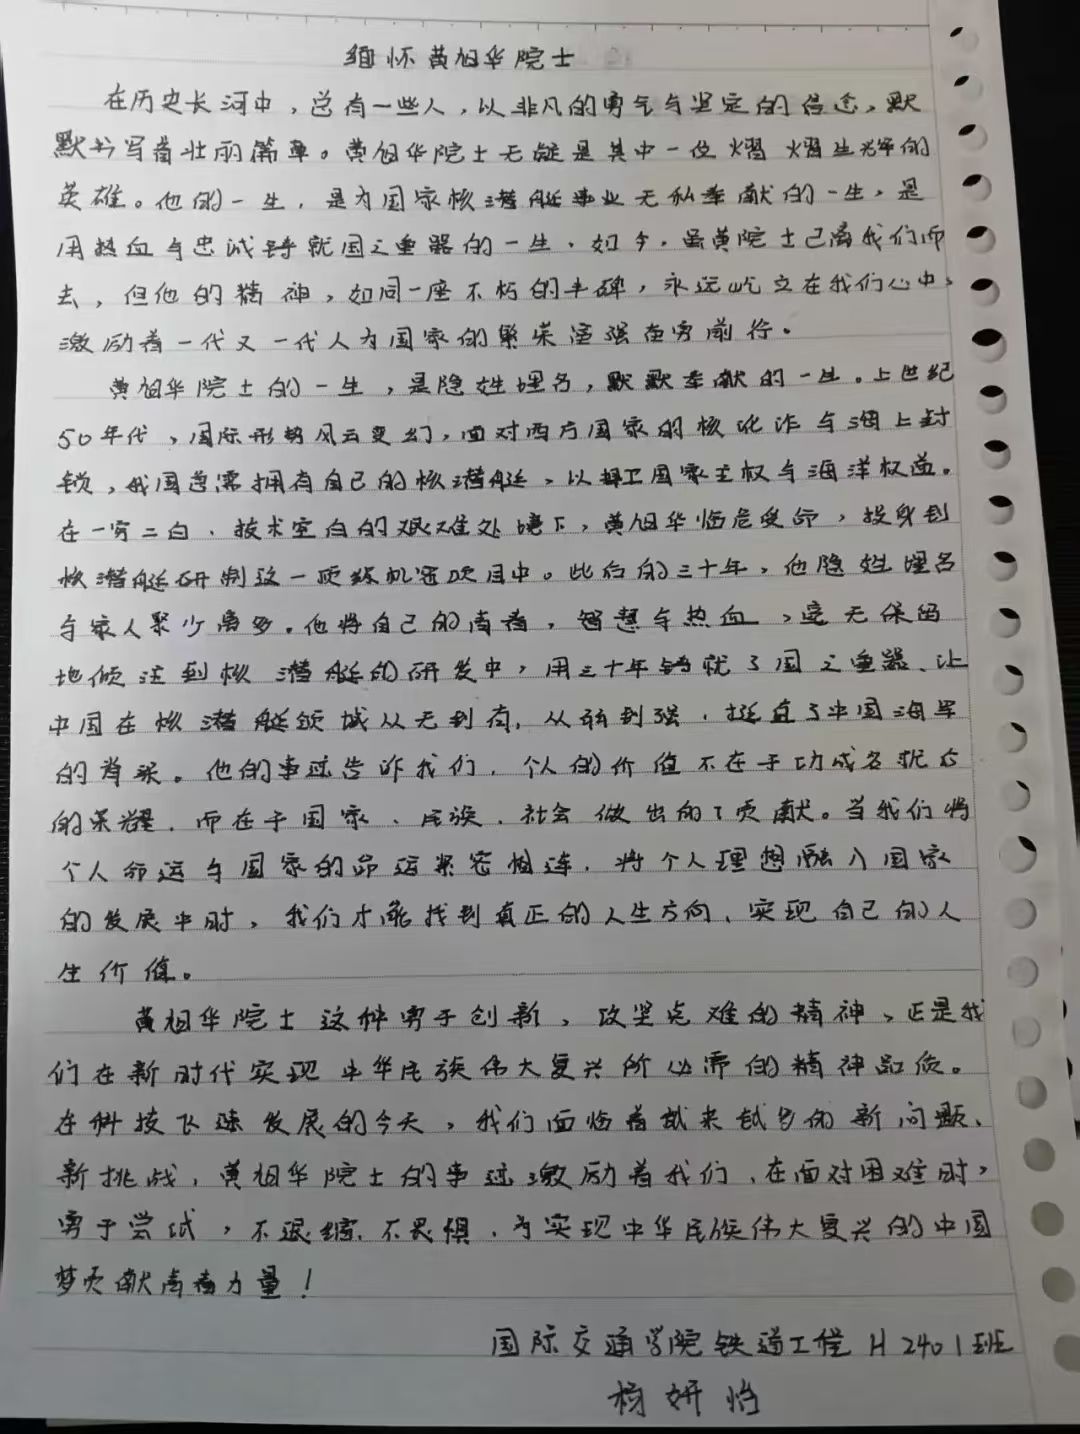 缅怀黄旭华院士
在历史长河中，总有一些人，以非凡的勇气与坚定的信念，默
默书写着壮丽篇章。黄旭华院士无疑是其中一位熠熠生辉的
英雄。他的一生，是为国家核潜艇事业无私奉献的一生，是
用热血与忠诚铸就国之重器的一生。如今，虽黄院士已离我们而
去，但他的精神，如同一座不朽的丰碑，永远屹立在我们心中，
激励着一代又一代人为国家的繁荣富强奋勇前行。
黄旭华院士的一生，是隐姓埋名，默默奉献的一生。上世纪
50年代，国际形势风云变幻，面对西方国家的核讹诈与海上封
锁，我国急需拥有自己的核潜艇，以捍卫国家主权与海洋权益。
在一穷二白、技术空白的艰难处境下，黄旭华临危受命，投身到
核潜艇研制这一项绝机密项目中。此后的三十年，他隐姓埋名
与家人聚少离多。他将自己的青春，智慧与热血，毫无保留
地倾注到核潜艇的研发中，用三十年铸就了国之重器、让
中国在核潜艇领域从无到有，从弱到强，挺直了中国海军
的脊梁。他的事迹告诉我们，个人的价值不在于功成名就后
的荣耀，而在于国家、民族、社会做出的了贡献。当我们将
个人命运与国家的命运紧密相连，将个人理想融入国家
的发展中时，我们才能找到真正的人生方向、实现自己的人
生价值。
黄旭华院士这种勇于创新、攻坚克难的精神，正是我
们在新时代实现中华民族伟大复兴所必需的精神品质。
在科技飞速发展的今天，我们面临着越来越多的新问题、
新挑战，黄旭华院士的事迹激励着我们，在面对困难时，
勇于尝试，不退缩、不畏惧，为实现中华民族伟大复兴的中国
梦贡献青春力量！
国际交通学院铁道工程H2401班
杨妍怡